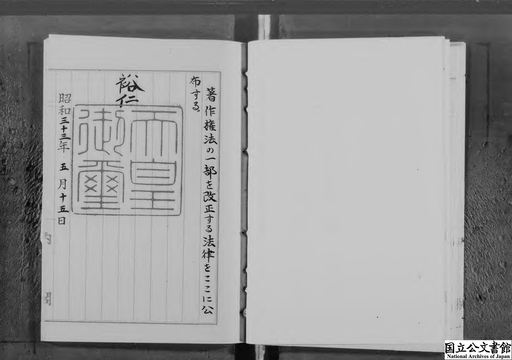 著作権法の一部を改正する法律をここに公
布する
裕仁
天皇
御璽
昭和三十三年五月十五日
国立公文書館
National Archives of Japan